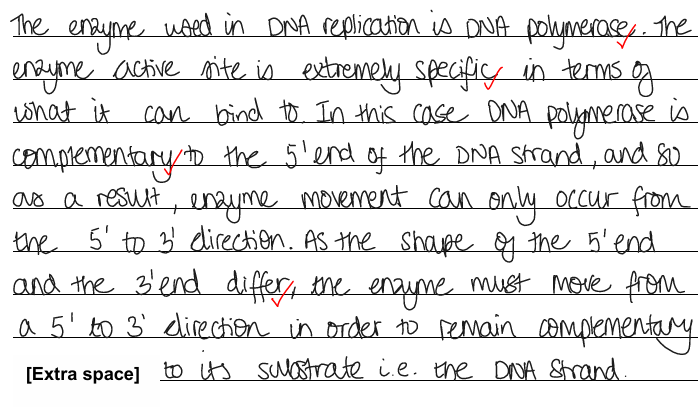 The enzyme used in DNA replication is DNA polymerase. The
enzyme active site is extremely specific in terms of
what it can bind to. In this case DNA polymerase is
complementary to the 5' end of the DNA strand, and so
as a result, enzyme movement can only occur from
the 5' to 3' direction. As the shape of the 5' end
and the 3' end differ, the enzyme must move from
a 5' to 3' direction in order to remain complementary
[Extra space] to its substrate i.e. the DNA strand.